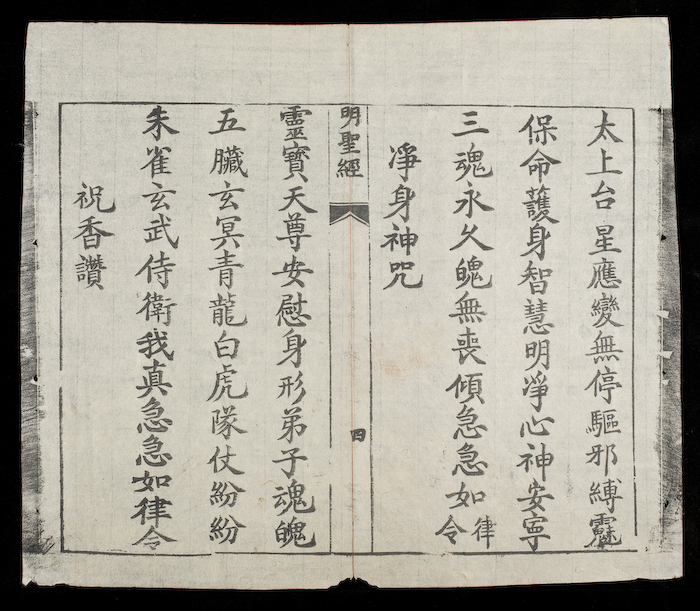 太上台星應變無停驅邪縛
保命護身智慧明凈心神安寧
三魂永久魄無喪傾急急如律令
凈身神咒
明聖經 四
靈寶天尊安慰身形弟子魂魄
五臟玄冥青龍白虎隊仗紛紛
朱雀玄武侍衛我真急急如律令
祝香讚